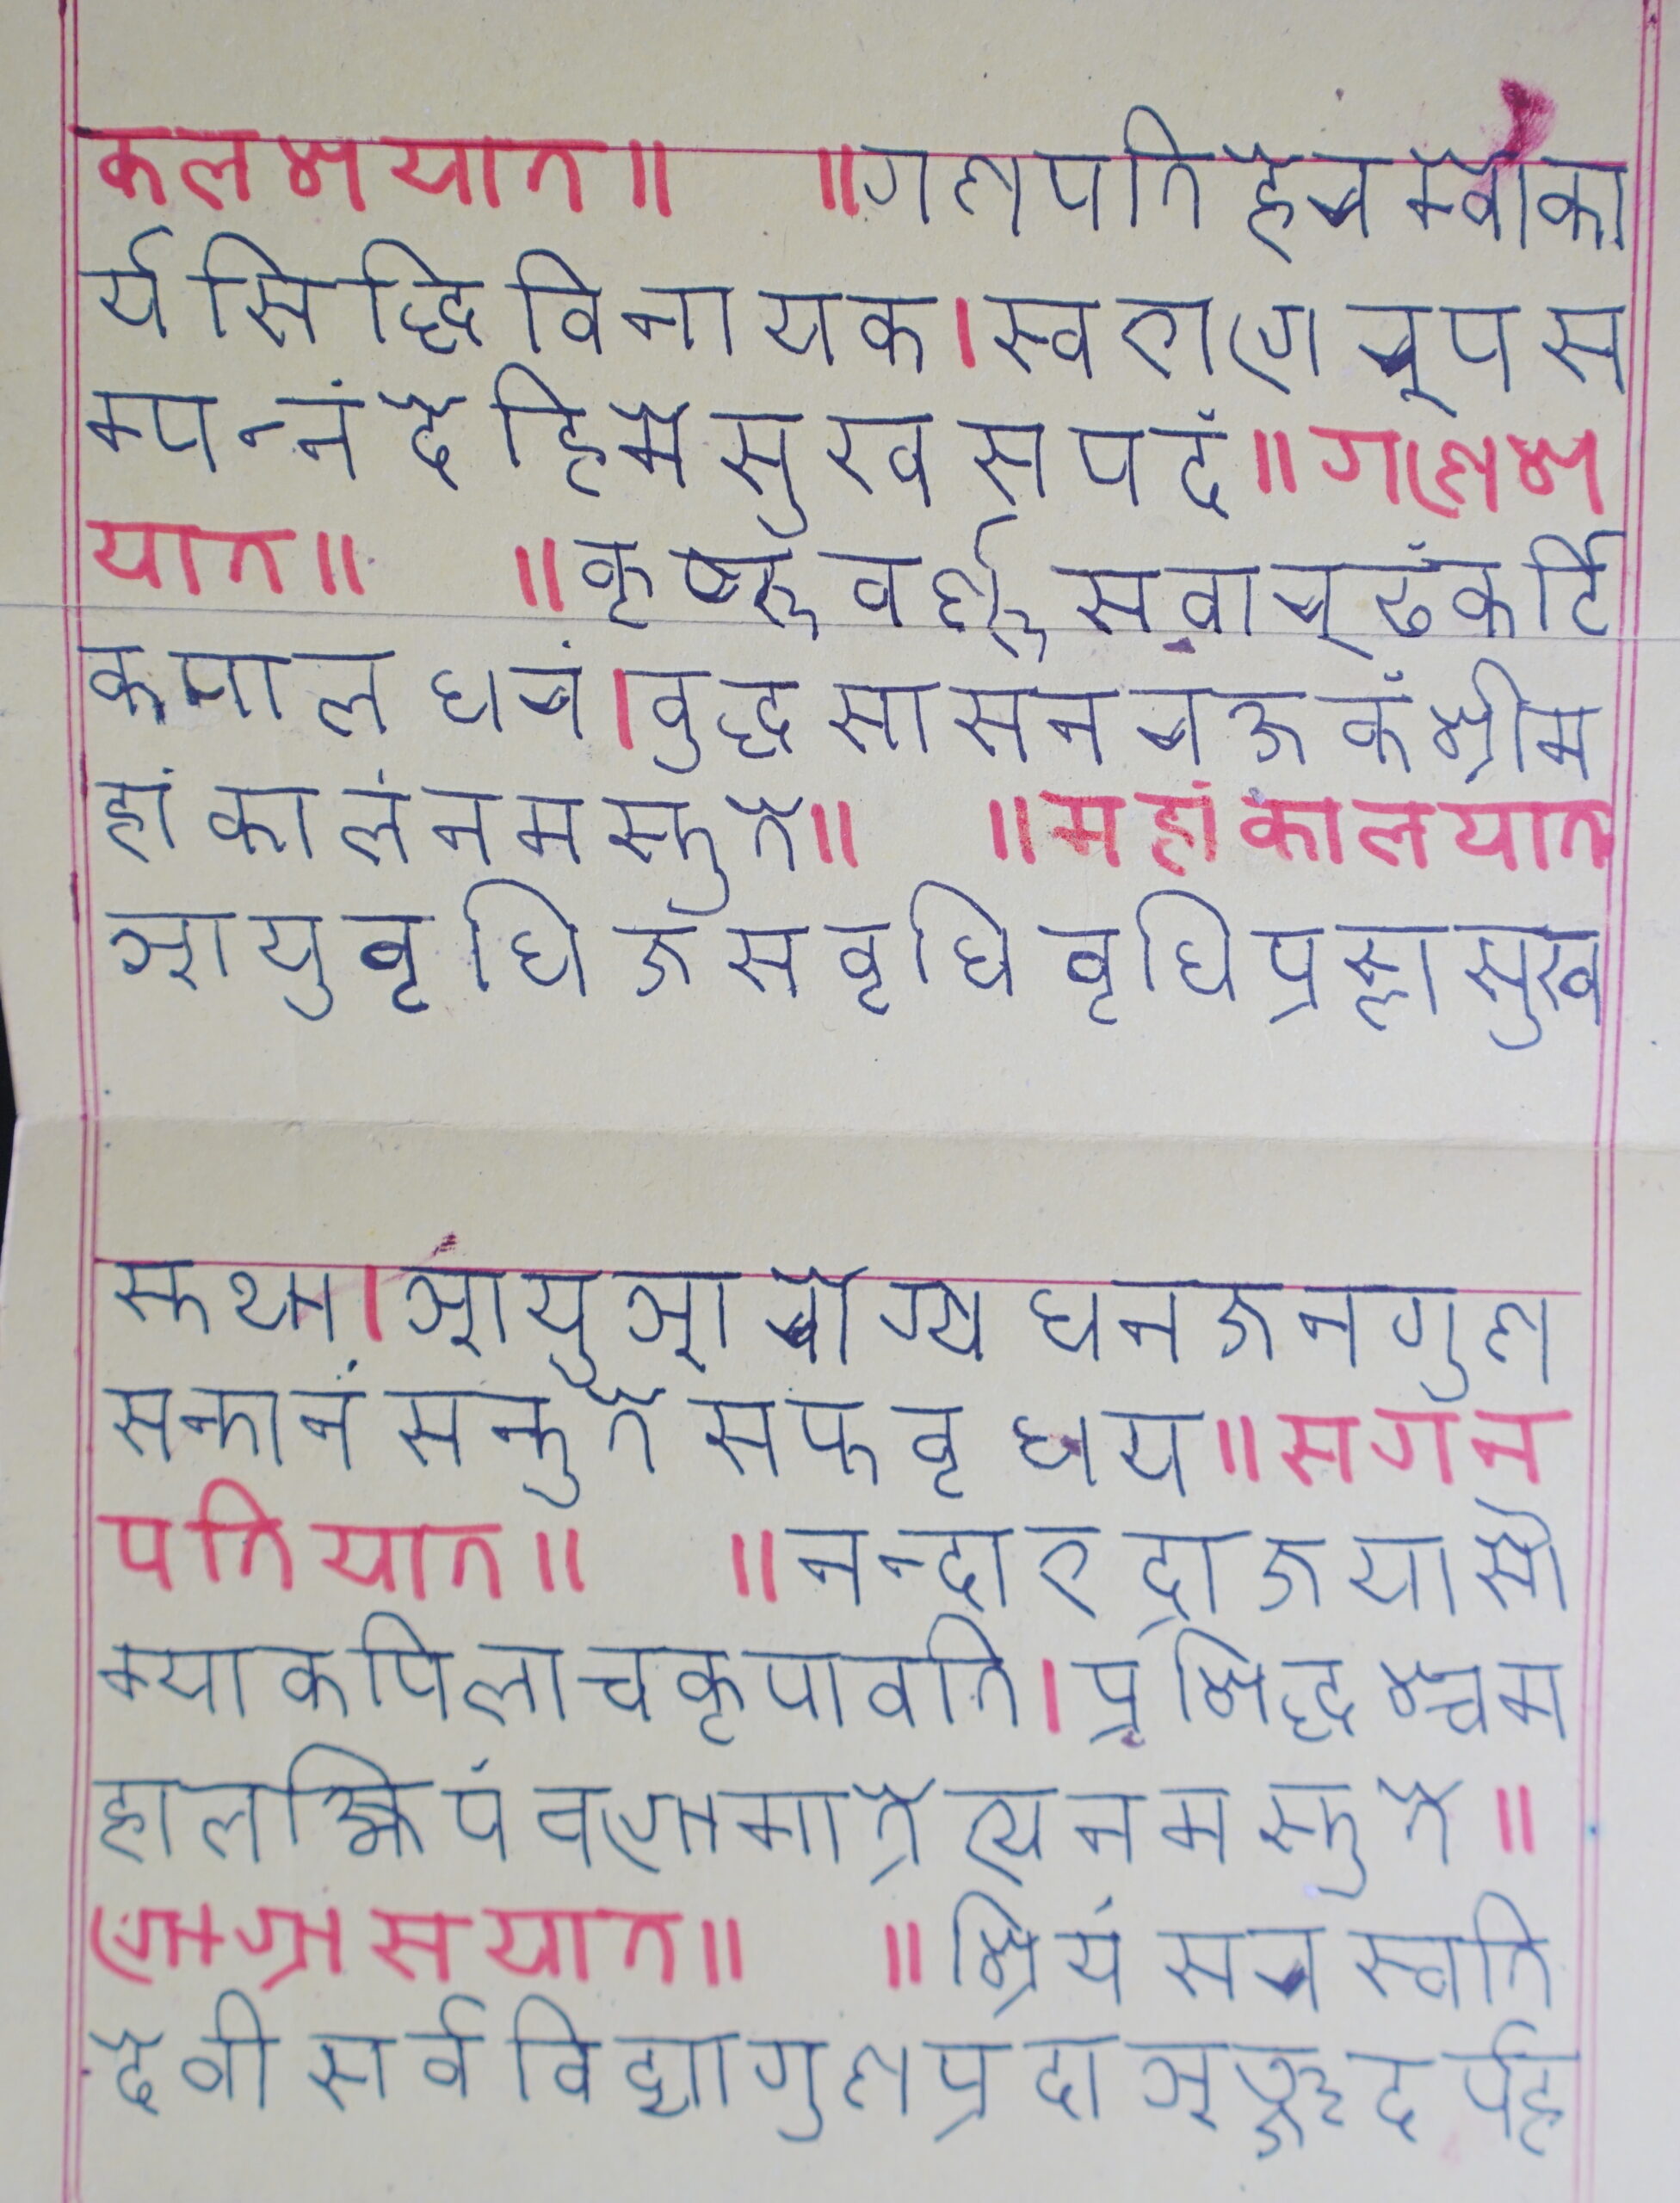 कलशयात॥ ॥गणपति हेरम्वोका
र्यसिद्धि विनायक।स्वर्ण रूपस
म्पन्नं देहिमे सुख सपदं॥गणेश
यात॥ ॥कृष्ण वर्ण सवारूढं कर्ति
कपाल धरं।वुद्ध सासन रक्षकं श्रीम
हांकालं नमस्तुते॥ ॥महांकालयात
आयु वृधि जस वृधि वृधि प्रज्ञा सुख
स्तथा।आयु आरोग्य धन जन गुण
सन्तानं सन्तुते सप्त वृधय॥सगन
पतियात॥ ॥नन्दा रद्रा जया सौ
म्या कपिला च कृपावति।प्रशिद्धश्च म
हालक्ष्मि पंच गामात्रे त्य नमस्तुते॥
गोग्रासयात॥ ॥श्रियं सरस्वति
देवी सर्व विद्या गुण प्रदा